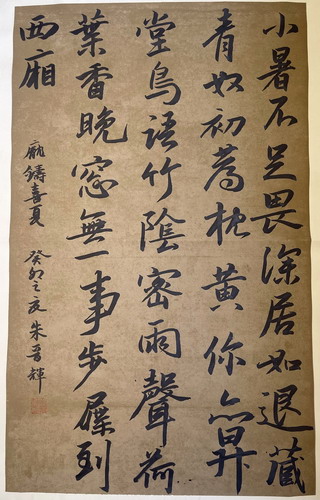 小暑不足畏深居如退藏
青奴初薦枕黃你亦昇
堂鳥語竹陰密雨聲荷
葉香晚窓無一事步屧到
西廂
龐鑄喜夏 癸卯之夏朱晋輝